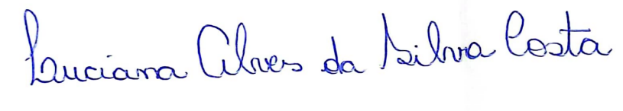 Luciana Alves da Silva Costa